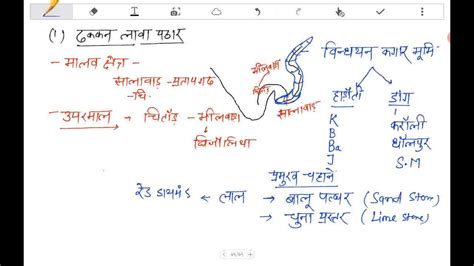 (1) दक्कन लावा पठार
- मालव क्षेत्र
सालावाड़ - प्रतापगढ़
- चि-
उपरमाल → चित्तौड़ - भीलवाड़ा
↓
बिजोलिया
भीलवाड़ा
चित्तौड़
सालावाड़
विन्धयन कगार भूमि
हाड़ौती डांग
K
B
Ba
J
करौली
धौलपुर
S.M
प्रमुख चट्टाने
रेड डायमंड ← लाल → बालू पत्थर (Sand Ston)
→ चुना पत्थर (Lime Stone)